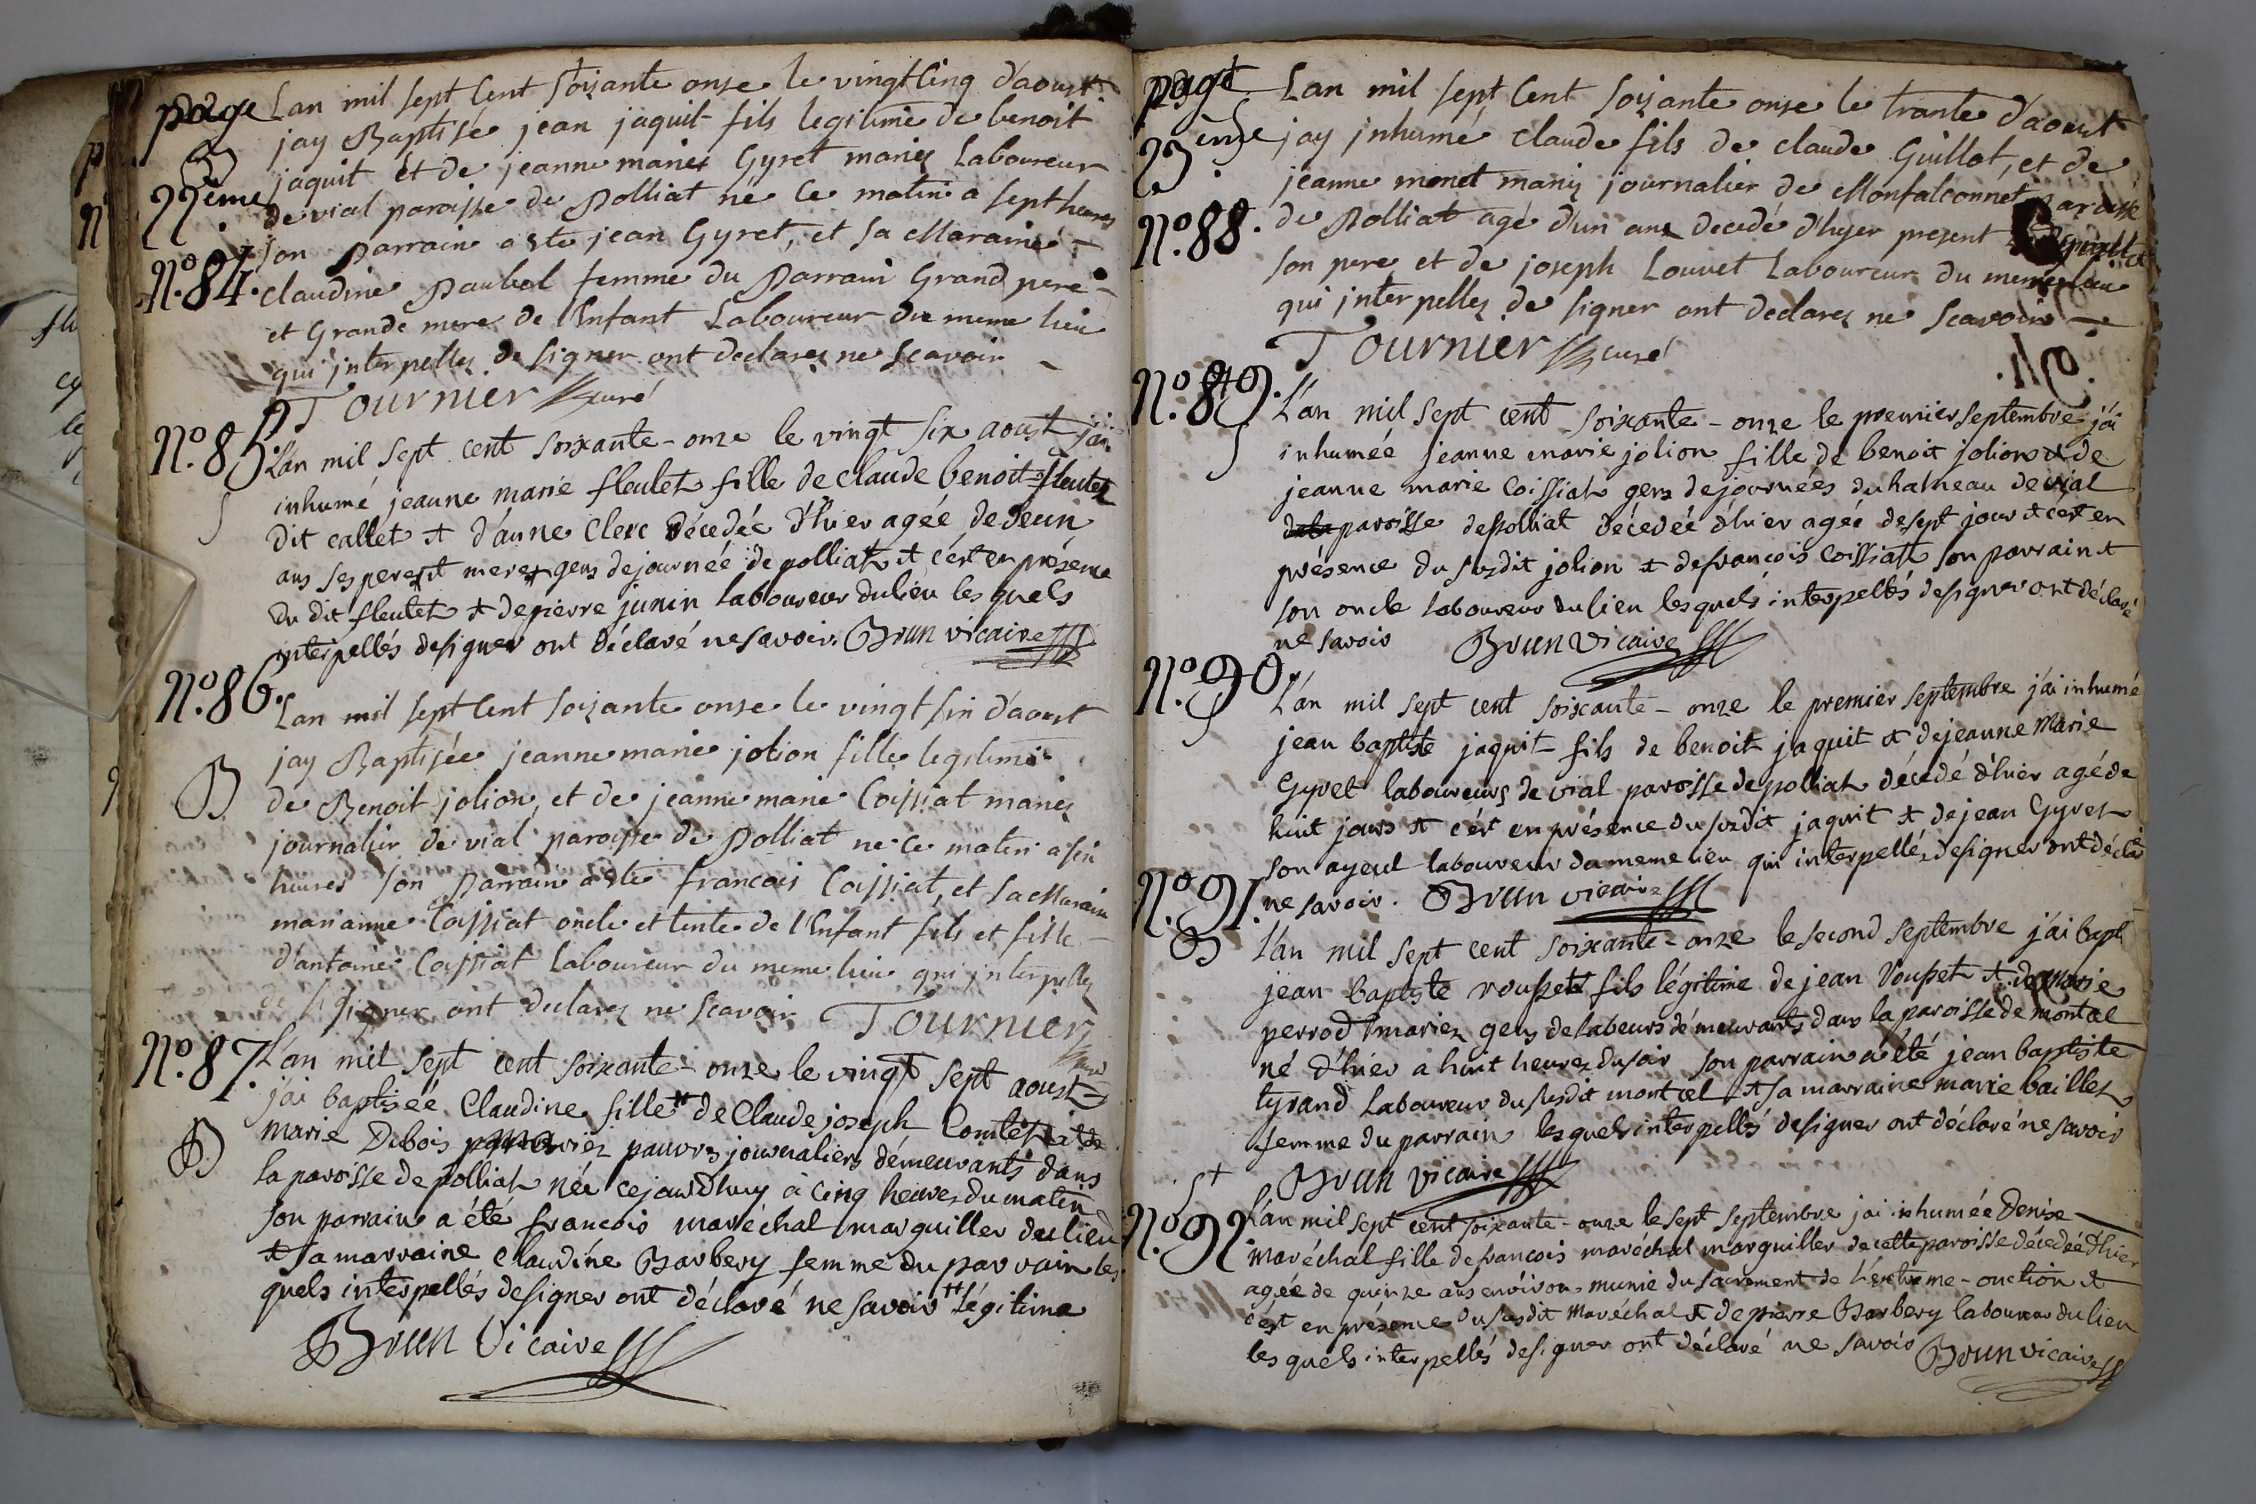 page
22ème
Lan mil sept Cent soizante onze le vingt Cinq d'aoust
jay Baptisé jean jaquit fils legitime de benoit
jaquit et de jeanne marie Gyret mariez Laboureur
de vial paroisse de Polliat né Ce matin a sept heures
N.º 84.
B
son Parrain a été jean Gyret, et sa Maraine
claudine Paubel femme du Parrain Grand pere
et Grande mere de l'Enfant Laboureur du meme lieu
qui interpellez de signer ont declarez ne scavoir
Tournier curé
N.º 85.
S
L'an mil sept cent soixante-onze le vingt six aoust j'ai
inhumé jeanne marie fleutet fille de claude benoit fleutet
dit callet et d'anne Clerc décedée d'hier agée de deun
ans ses pere et mere gens de journée de polliat et c'est en présence
du dit fleutet et de pierre junin laboureur du lieu les quels
interpellés de signer ont déclaré ne savoir. Brun vicaire
N.º 86.
B
Lan mil sept Cent soizante onze le vingt sin d'aoust
jay Baptisée jeanne marie jolion fille legitime
de Benoit jolion, et de jeanne marie Coissiat mariez
journalier de vial paroisse de Polliat né Ce matin a sin
heures son Parrain a été francois Coissiat, et sa Maraine
marianne Coissiat oncle et tente de l'Enfant fils et fille
d'antoine Coissiat Laboureur du meme lieu qui interpellez
de signer ont declarez ne scavoir Tournier curé
N.º 87.
B
L'an mil sept cent soixante-onze le vingt sept aoust
j'ai baptisée Claudine fille ++ de Claude joseph Comtet et de
marie Dubois mariez pauvres journaliers démeurants dans
la paroisse de polliat née cejourd'huy à cinq heures du matin
son parrain a été francois maréchal marguiller du lieu
et sa marraine Claudine Barbery femme du parrain les
quels interpellés de signer ont déclaré ne savoir ++ légitime
Brun Vicaire
page
23ème
N.º 88.
Lan mil sept Cent soizante onze le trante d'aoust
jay inhumé claude fils de claude Guillot, et de
jeanne monet mariez journalier de Monfalconnet paroisse
de Polliat agé d'un anz decedé d'hyer present
son pere et de joseph Louvet Laboureur du meme lieu
qui interpellez de signer ont declarez ne scavoir
Tournier curé
N.º 89.
S
L'an mil sept cent soixante-onze le premier septembre j'ai
inhumée jeanne marie jolion fille de benoit jolion et de
jeanne marie Coissiat gens de journées du hameau de vial
paroisse de polliat décedée d'hier agée de sept jour et c'est en
présence du susdit jolion et de francois Coissiat son parrain et
son oncle laboureur du lieu lesquels interpellés de signer ont déclaré
ne savoir Brun Vicaire
N.º 90.
S
L'an mil sept cent soixante-onze le premier septembre j'ai inhumé
jean baptiste jaquit fils de benoit jaquit et de jeanne Marie
Gyret laboureurs de vial paroisse de polliat décedé d'hier agé de
huit jours et c'est en présence du susdit jaquit et de jean Gyret
son ayeul laboureur du meme lieu qui interpellés de signer ont déclaré
ne savoir. Brun vicaire
N.º 91.
B
L'an mil sept cent soixante-onze le second septembre j'ai bapt
jean baptiste rousset fils légitime de jean Rousset et de marie
perrod mariez gens de labeurs démeurants dans la paroisse de montcel
né d'hier a huit heures du soir son parrain a été jean baptiste
tyrand laboureur du susdit montcel et sa marraine marie baillet
femme du parrain les quels interpellés de signer ont déclaré ne savoir
Brun vicaire
N.º 92.
S+
L'an mil sept cent soixante-onze le sept septembre j'ai inhumée Denise
maréchal fille de francois maréchal marguiller de cette paroisse décedée d'hier
agée de quinze ans environ munie du sacrement de l'extreme-onction et
c'est en présence du susdit maréchal et de pierre Barbery laboureur du lieu
les quels interpellés de signer ont déclaré ne savoir Brun vicaire